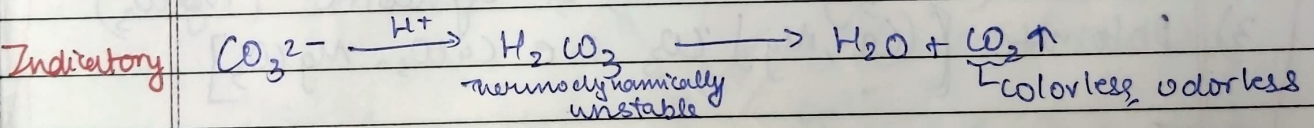 Indicatory CO₃²⁻ —H+→ H₂CO₃ ⟶ H₂O + CO₂↑
thermodynamically
unstable
colorless, odorless